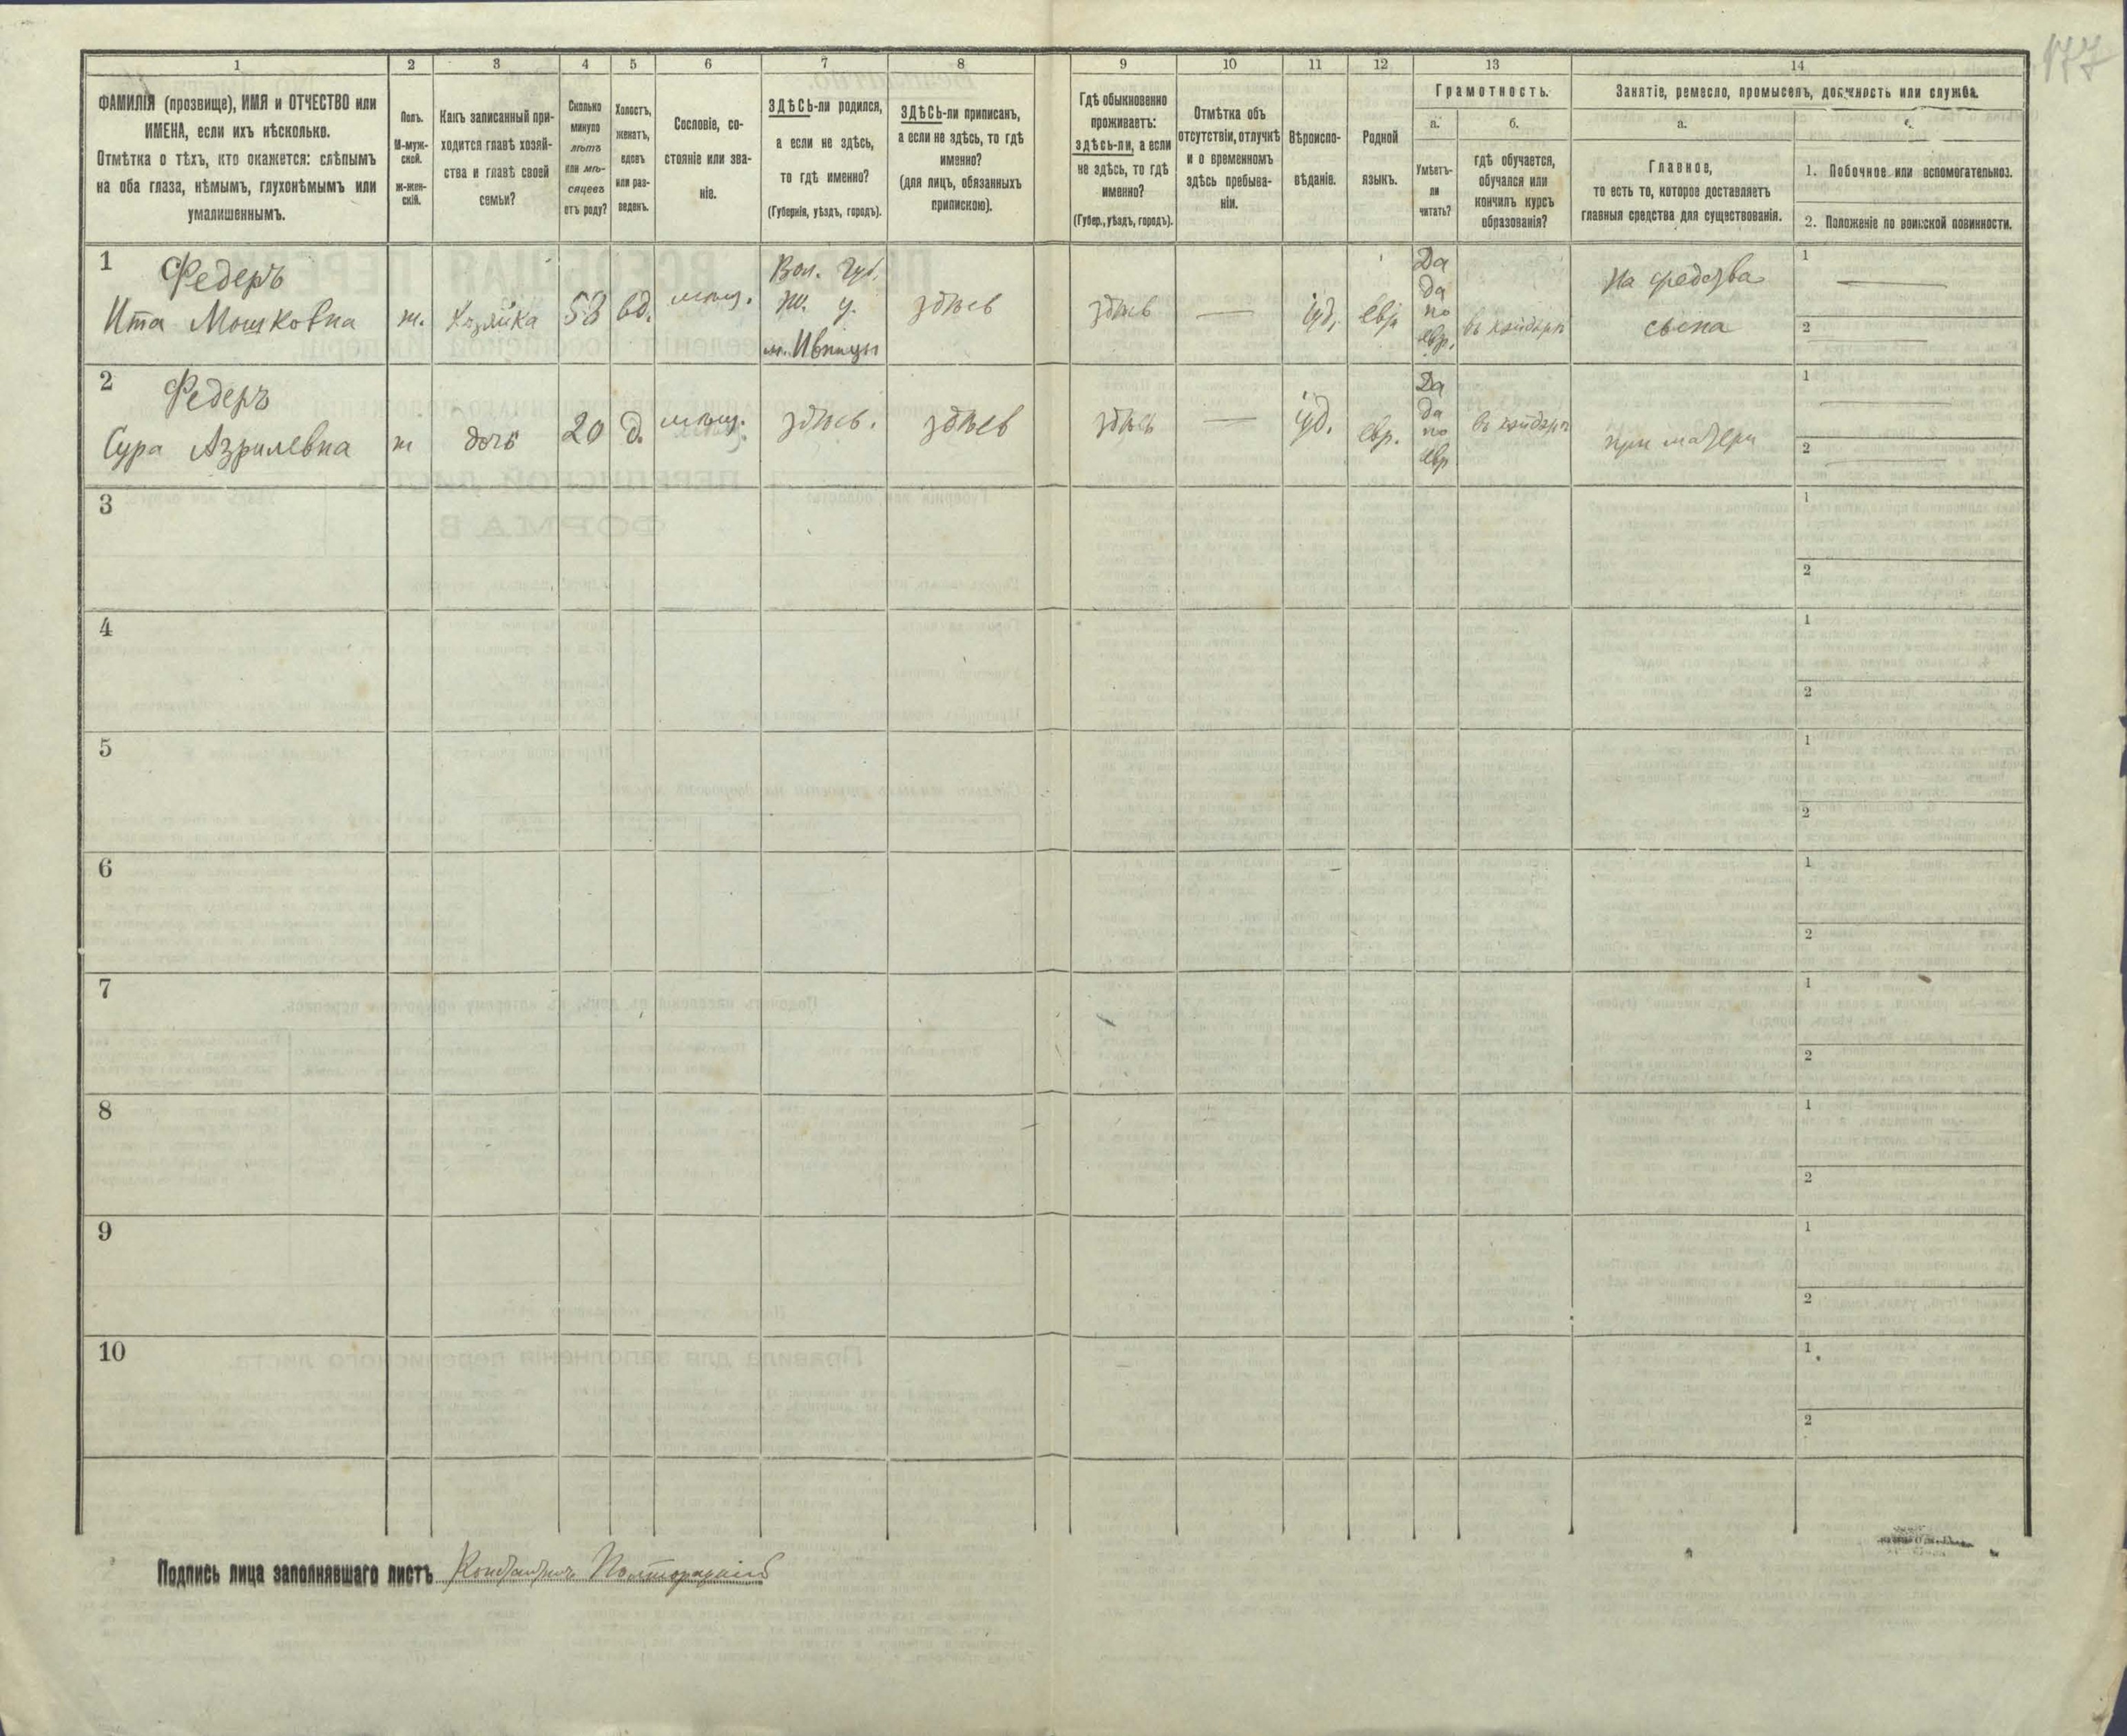 177
1 2 3 4 5 6 7 8 9 10 11 12 13 14
ФАМИЛІЯ (прозвище), ИМЯ и ОТЧЕСТВО или
ИМЕНА, если ихъ нѣсколько.
Отмѣтка о тѣхъ, кто окажется: слѣпымъ
на оба глаза, нѣмымъ, глухонѣмымъ или
умалишеннымъ.
Полъ.
М-муж-
ской.
Ж-жен-
скій.
Какъ записанный при-
ходится главѣ хозяй-
ства и главѣ своей
семьи?
Сколько
минуло
лѣтъ
или мѣ-
сяцевъ
отъ роду?
Холостъ,
женатъ,
вдовъ
или раз-
веденъ.
Сословіе, со-
стояніе или зва-
ніе.
ЗДѢСЬ-ли родился,
а если не здѣсь,
то гдѣ именно?
(Губернія, уѣздъ, городъ).
ЗДѢСЬ-ли приписанъ,
а если не здѣсь, то гдѣ
именно?
(для лицъ, обязанныхъ
припискою).
Гдѣ обыкновенно
проживаетъ:
здѣсь-ли, а если
не здѣсь, то гдѣ
именно?
(Губер., уѣздъ, городъ).
Отмѣтка объ
отсутствіи, отлучкѣ
и о временномъ
здѣсь пребыва-
ніи.
Вѣроиспо-
вѣданіе.
Родной
языкъ.
Грамотность.
а.
Умѣетъ-
ли
читать?
б.
гдѣ обучается,
обучался или
кончилъ курсъ
образованія?
Занятіе, ремесло, промыселъ, должность или служба.
а.
Главное,
то есть то, которое доставляетъ
главныя средства для существованія.
1. Побочное или вспомогательное.
2. Положеніе по воинской повинности.
1 Федеръ
Ита Мошковна
ж.
Хозяйка
58
вд.
мѣщ.
Вол. Губ.
Жи. у.
м. Ивницы
здѣсь
здѣсь
іуд.
евр.
Да
да
по
евр.
въ хайдерѣ
На средства
сына
1
2
2 Федеръ
Сура Азрилевна
ж
дочь
20
д.
мѣщ.
здѣсь.
здѣсь
здѣсь
іуд.
евр.
Да
да
по
евр
въ хайдерѣ
при матери
1
2
3
1
2
4
1
2
5
1
2
6
1
2
7
1
2
8
1
2
9
1
2
10
1
2
Подпись лица заполнявшаго листъ Константинъ